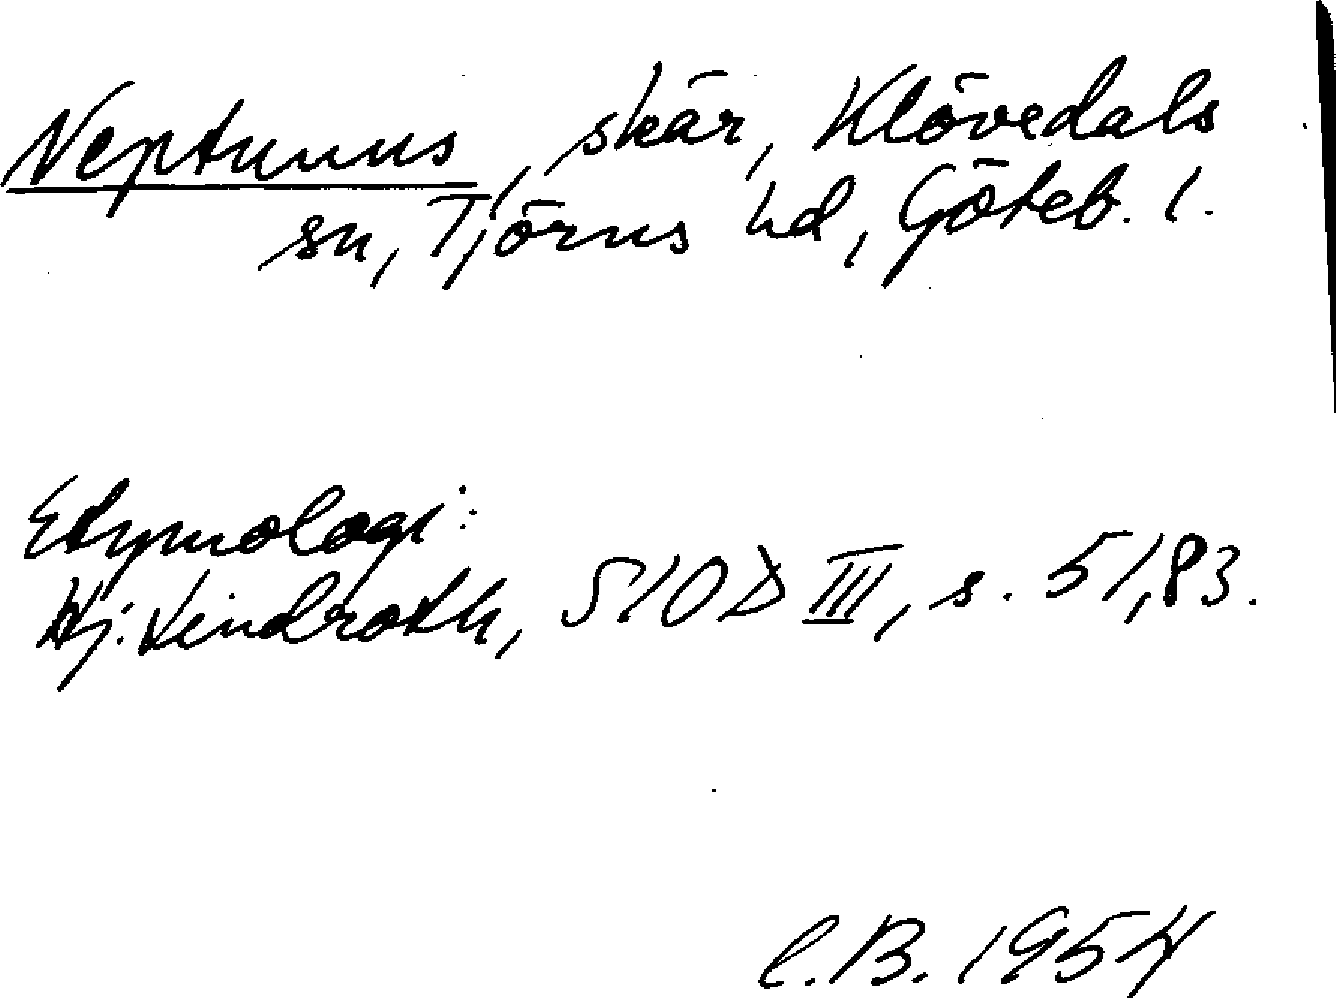 Neptunus, skär, Klövedals
sn, Tjörns hd, Göteb. l.
Etymologi:
Hj. Lindroth, SIOD III, s. 51, 83.
C.B. 1954